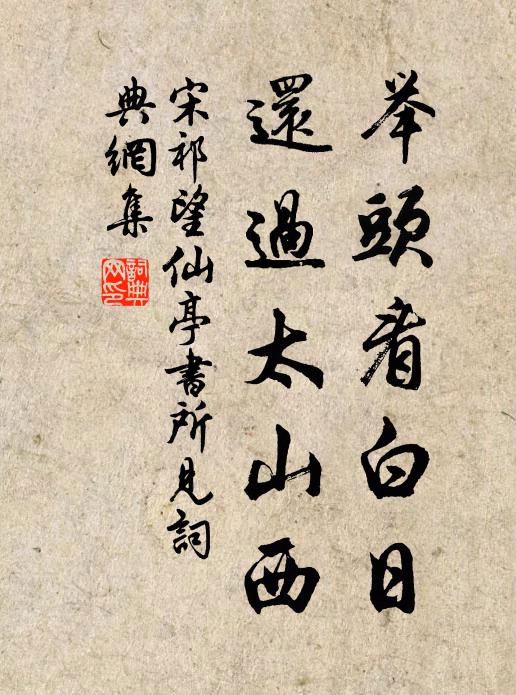 举頭看白日
還過太山西
宋祁望仙亭書所見詞
典網集
詞典网印